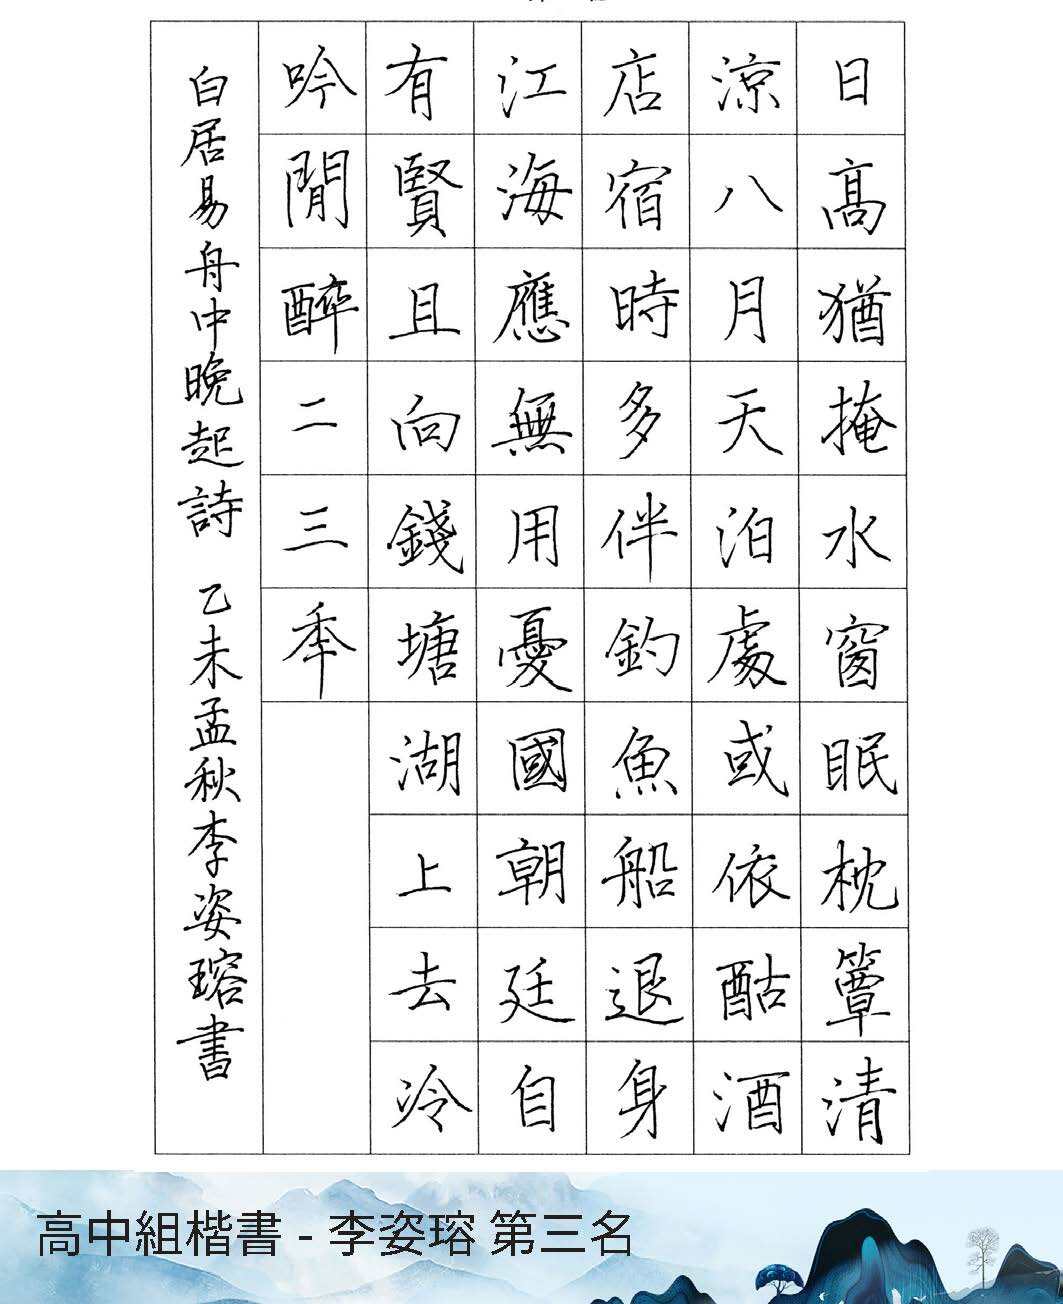 日高猶掩水窗眠枕簟清
涼八月天泊處或依酤酒
店宿時多伴釣魚船退身
江海應無用憂國朝廷自
有賢且向錢塘湖上去冷
吟閒醉二三年
白居易舟中晚起詩 乙未孟秋李姿瑢書
高中組楷書 - 李姿瑢 第三名